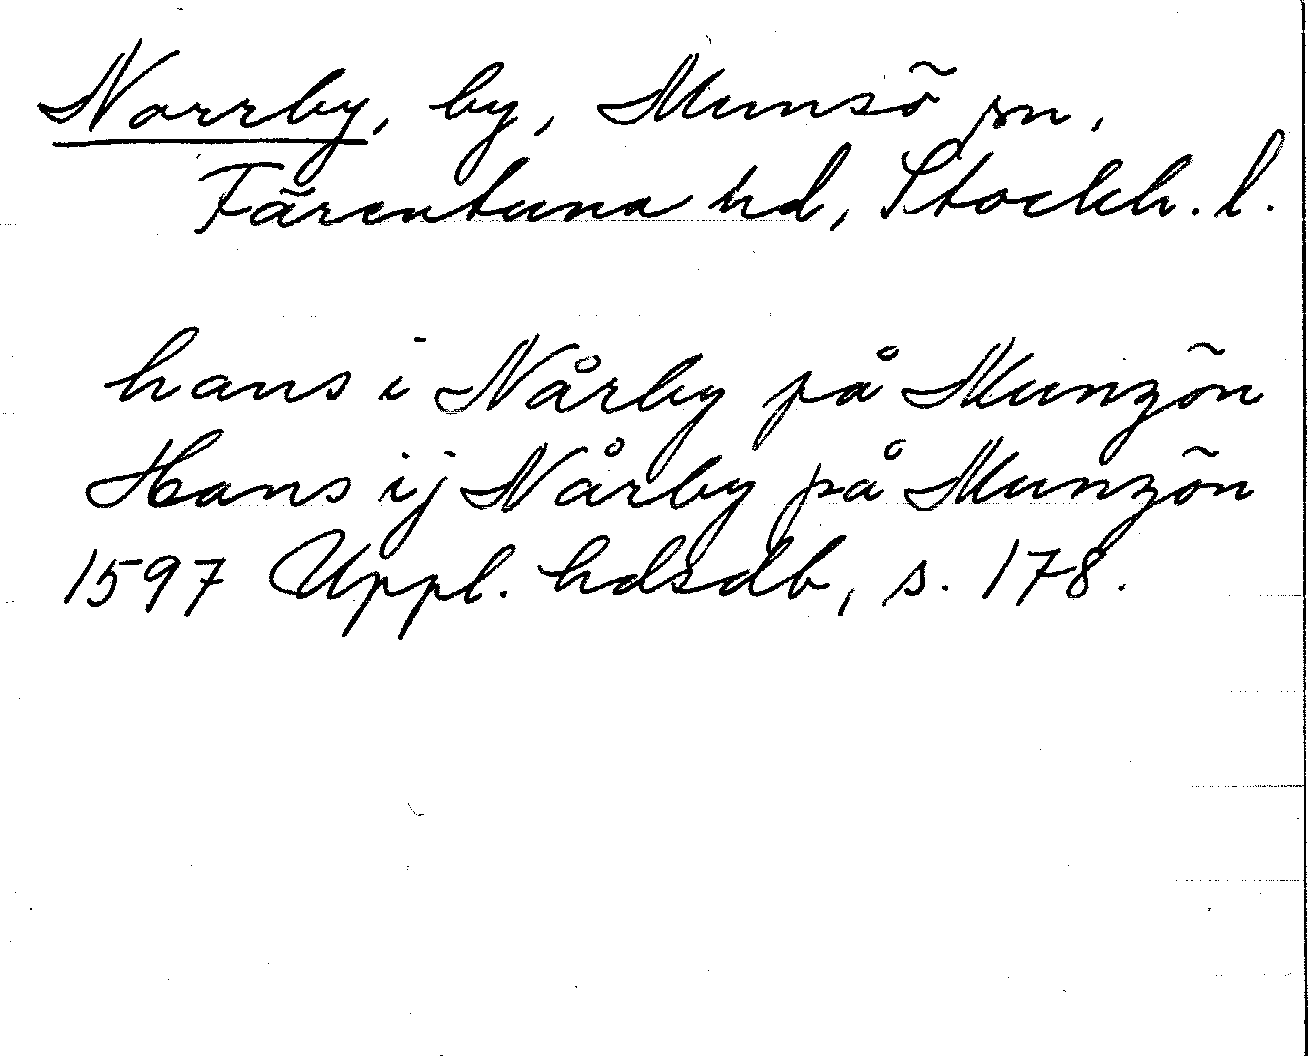 Norrby, by, Munsö sn,
Färentuna hd, Stockh. l.
hans i Nårby på Munzön
Hans ij Nårby på Munzön
1597 Uppl. hdsdb, s. 178.